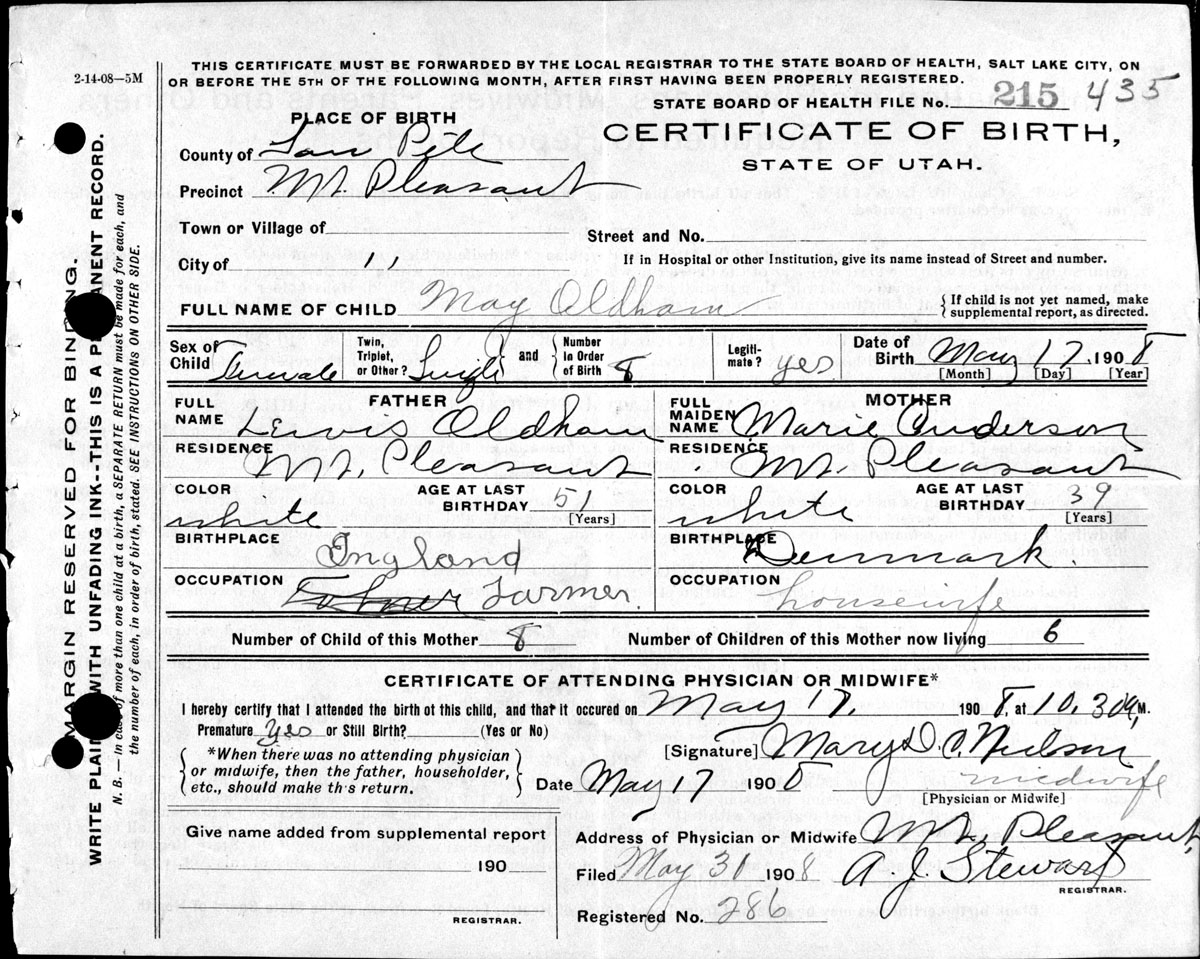 2-14-08—5M
THIS CERTIFICATE MUST BE FORWARDED BY THE LOCAL REGISTRAR TO THE STATE BOARD OF HEALTH, SALT LAKE CITY, ON
OR BEFORE THE 5TH OF THE FOLLOWING MONTH, AFTER FIRST HAVING BEEN PROPERLY REGISTERED.
STATE BOARD OF HEALTH FILE No. 215 435
PLACE OF BIRTH
CERTIFICATE OF BIRTH,
STATE OF UTAH.
County of San Pete
Precinct Mt. Pleasant
Town or Village of
Street and No.
City of 11
If in Hospital or other Institution, give its name instead of Street and number.
FULL NAME OF CHILD May Oldham
{ If child is not yet named, make
supplemental report, as directed.
Sex of Child Female
Twin, Triplet, or Other? Single } and { Number In Order of Birth 8
Legiti-mate? yes
Date of Birth May 17, 1908
[Month] [Day] [Year]
FATHER
FULL NAME Lewis Oldham
RESIDENCE Mt. Pleasant
COLOR white
AGE AT LAST BIRTHDAY 51 [Years]
BIRTHPLACE England
OCCUPATION Farmer.
MOTHER
FULL MAIDEN NAME Marie Anderson
RESIDENCE Mt. Pleasant
COLOR white
AGE AT LAST BIRTHDAY 39 [Years]
BIRTHPLACE Denmark.
OCCUPATION housewife
Number of Child of this Mother 8
Number of Children of this Mother now living 6
CERTIFICATE OF ATTENDING PHYSICIAN OR MIDWIFE*
I hereby certify that I attended the birth of this child, and that it occured on May 17, 1908, at 10,30 a, M.
Premature Yes or Still Birth? (Yes or No)
{ *When there was no attending physician
or midwife, then the father, householder,
etc., should make th's return. }
[Signature] Mary D. C. Neilson
Date May 17 1908
midwife
[Physician or Midwife]
Give name added from supplemental report
190
REGISTRAR.
Address of Physician or Midwife Mt. Pleasant,
Filed May 31 1908 A. J. Stewart
REGISTRAR.
Registered No. 286
MARGIN RESERVED FOR BINDING.
WRITE PLAINLY WITH UNFADING INK--THIS IS A PERMANENT RECORD.
N. B.—In case of more than one child at a birth, a SEPARATE RETURN must be made for each, and
the number of each, in order of birth, stated. SEE INSTRUCTIONS ON OTHER SIDE.